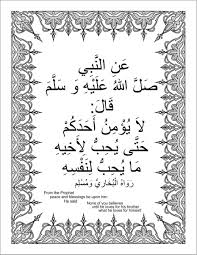 عَنِ النَّبِي
صَلَّ اللهُ عَلَيْهِ وَ سَلَّمَ
قَالَ:
لَا يُؤْمِنُ أَحَدُكُمْ
حَتَّى يُحِبُّ لِأَخِيهِ
مَا يُحِبُّ لِنَفْسِهِ
رَوَاهُ الْبُخَارِي وَمُسْلِم
From the Prophet
peace and blessings be upon him:
He said
None of you believes
until he loves for his brother
what he loves for himself